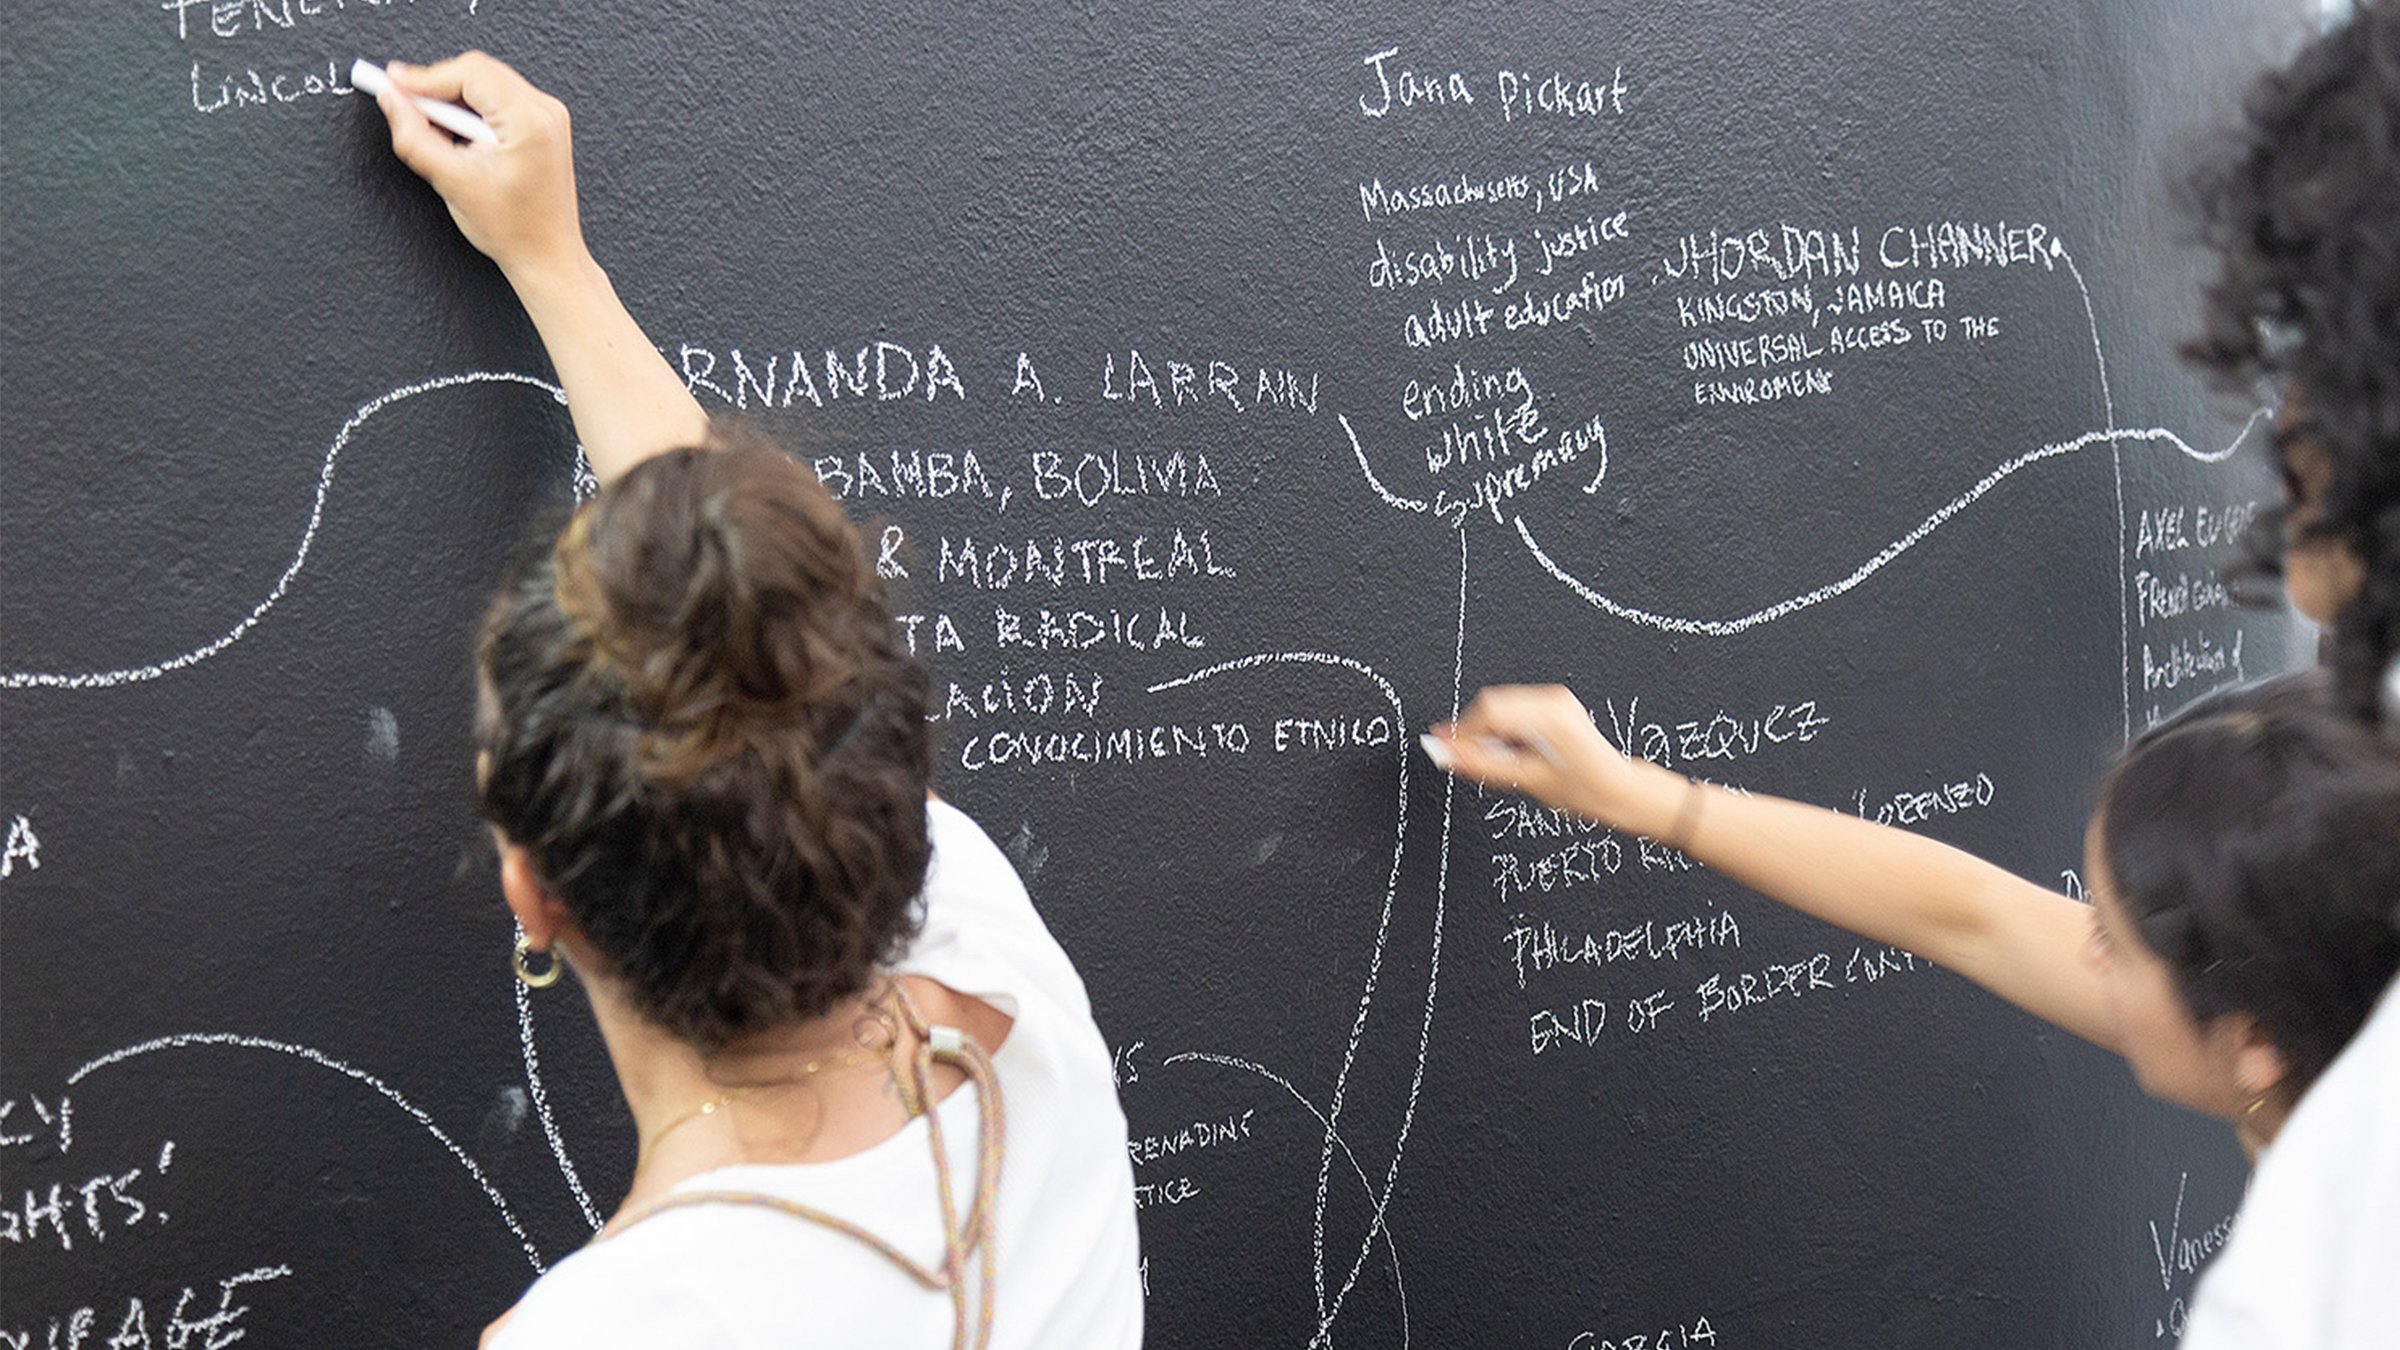 LINCOL
Jana Pickart
Massachusetts, USA
disability justice
adult education
ending
white
supremacy
JHORDAN CHANNER
KINGSTON, JAMAICA
UNIVERSAL ACCESS TO THE
ENVIROMENT
RNANDA A. LARRAIN
BAMBA, BOLIVIA
& MONTREAL
TA RADICAL
LACION
CONOCIMIENTO ETNICO
AXEL EUGENE
FRENCH
Architecture of
Vazquez
LORENZO
PUERTO
PHILADELPHIA
END OF BORDER CONT
A
CY
GHTS!
VS
RENADINE
TICE
GARCIA
Vaness